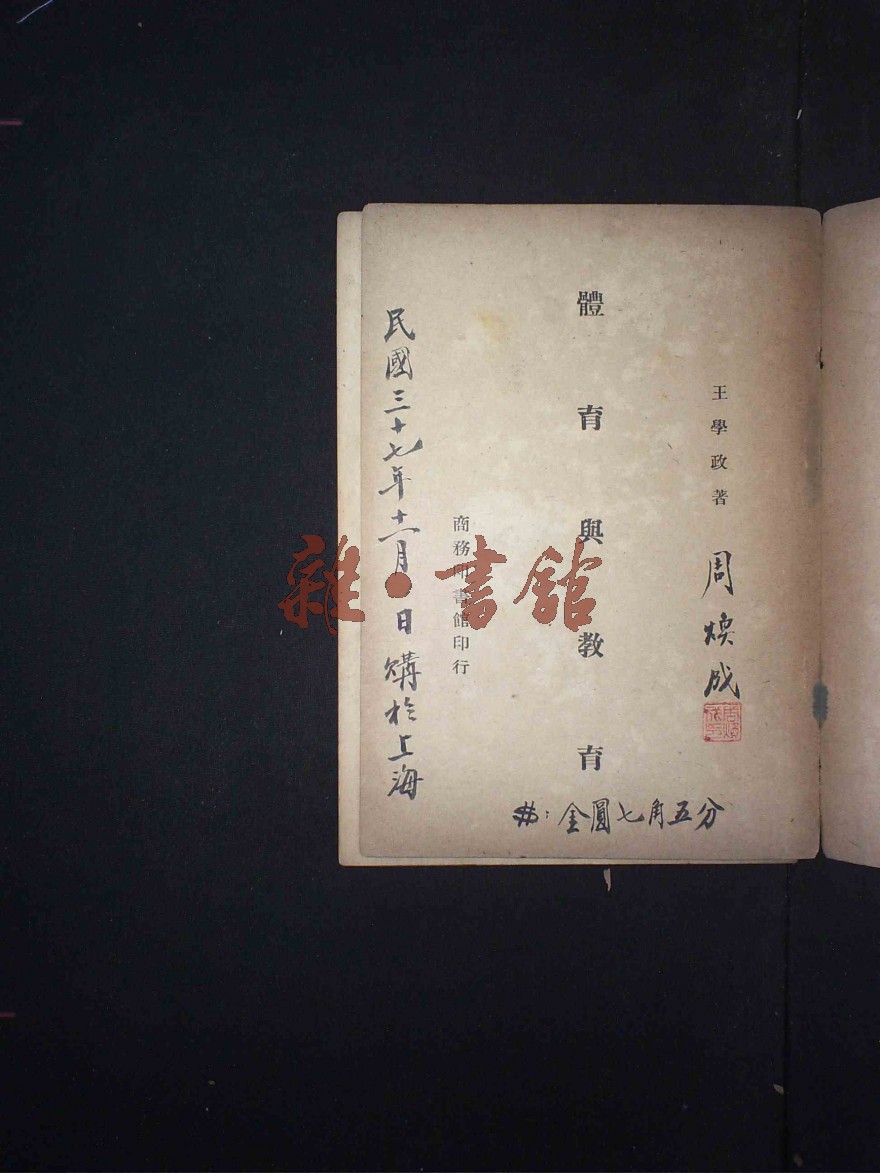 王學政著
周煥成
體育與教育
商務印書館印行
民國三十七年十一月 日購於上海
金圓七角五分
雜·書館